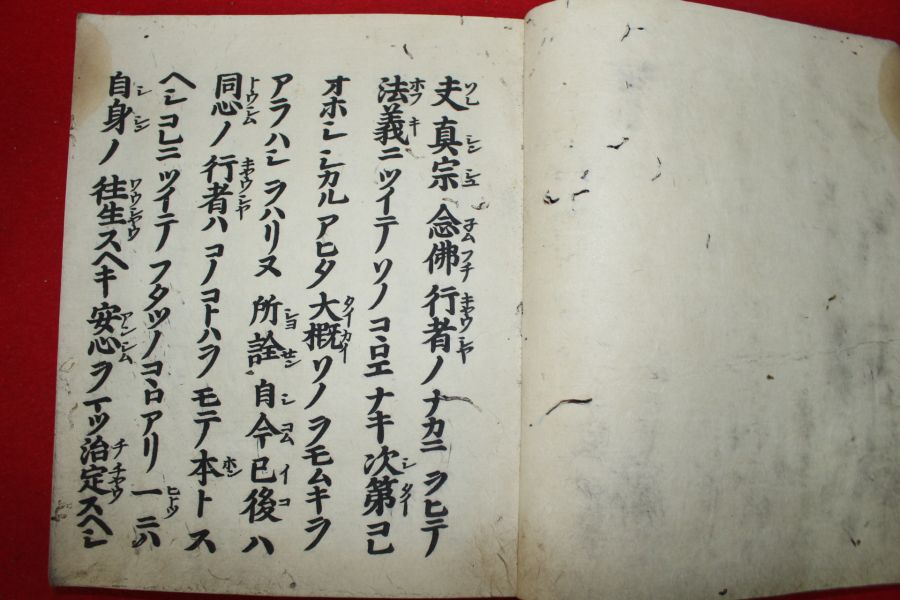 夫真宗念佛行者ノナカニヲヒテ
法義ニツイテソノコヽロエナキ次第コレ
オホシシカルアヒタ大概ソノヲモムキラ
アラハシヲハリヌ所詮自今已後ハ
同心ノ行者ハコノコトハヲモテ本トス
ヘシコレニツイテフタツノコヽロアリ一ニハ
自身ノ往生スヘキ安心ヲマツ治定スヘシ